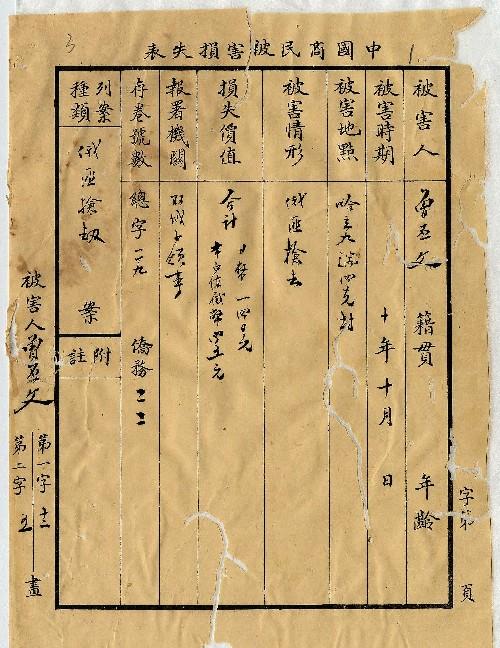 中國商民被害損失表
1
3
字第 頁
被害人 曾丕文 籍貫 年齡
被害時期 十年十月 日
被害地點
被害情形 俄匪搶去
損失價值 合計
報署機關 領事
存卷號數 總字一一九 僑務二二
列案種類 俄匪搶刼 案
附註
被害人曾丕文 第一字十二 第二字五 畫